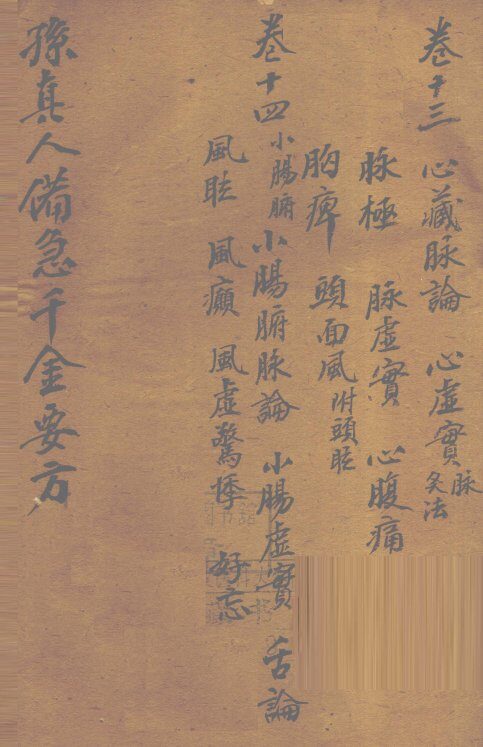 卷十三 心藏脉論 心虛實 脉灸法
脉極 脉虛實 心腹痛
胸痺 頭面風 附頭眩
卷十四 小腸腑 小腸腑脉論 小腸虛實 舌論
風眩 風癲 風虛驚悸 好忘
孫真人備急千金要方